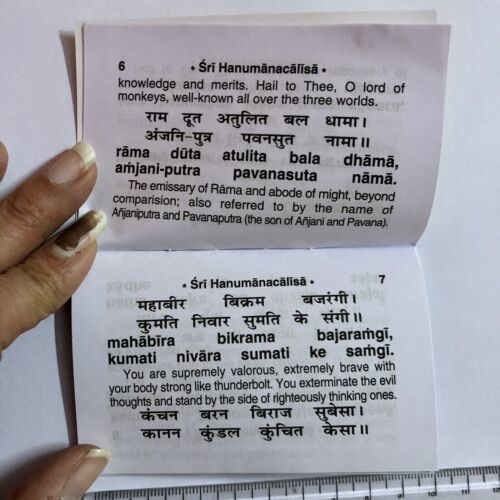 6 * Śrī Hanumānacālīsā *
knowledge and merits. Hail to Thee, O lord of
monkeys, well-known all over the three worlds.
राम दूत अतुलित बल धामा।
अंजनि-पुत्र पवनसुत नामा॥
rāma dūta atulita bala dhāmā,
aṁjani-putra pavanasuta nāmā.
The emissary of Rāma and abode of might, beyond
comparision; also referred to by the name of
Añjanīputra and Pavanaputra (the son of Añjani and Pavana).
* Śrī Hanumānacālīsā * 7
महाबीर बिक्रम बजरंगी।
कुमति निवार सुमति के संगी॥
mahābīra bikrama bajaraṁgī,
kumati nivāra sumati ke saṁgī.
You are supremely valorous, extremely brave with
your body strong like thunderbolt. You exterminate the evil
thoughts and stand by the side of righteously thinking ones.
कंचन बरन बिराज सुबेसा।
कानन कुंडल कुंचित केसा॥